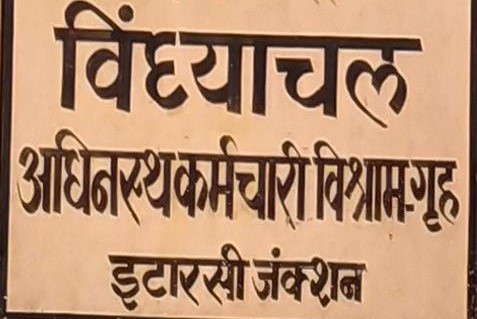 विंध्याचल
अधिनस्थ कर्मचारी विश्राम-गृह
इटारसी जंक्शन